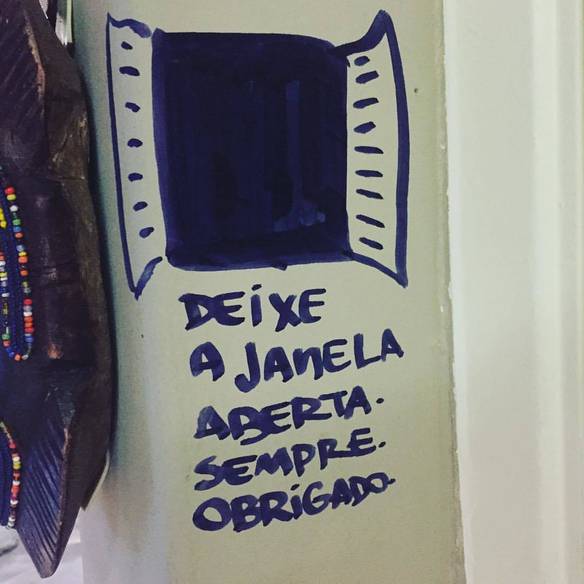 DEIXE
A JANELA
ABERTA.
SEMPRE.
OBRIGADO.